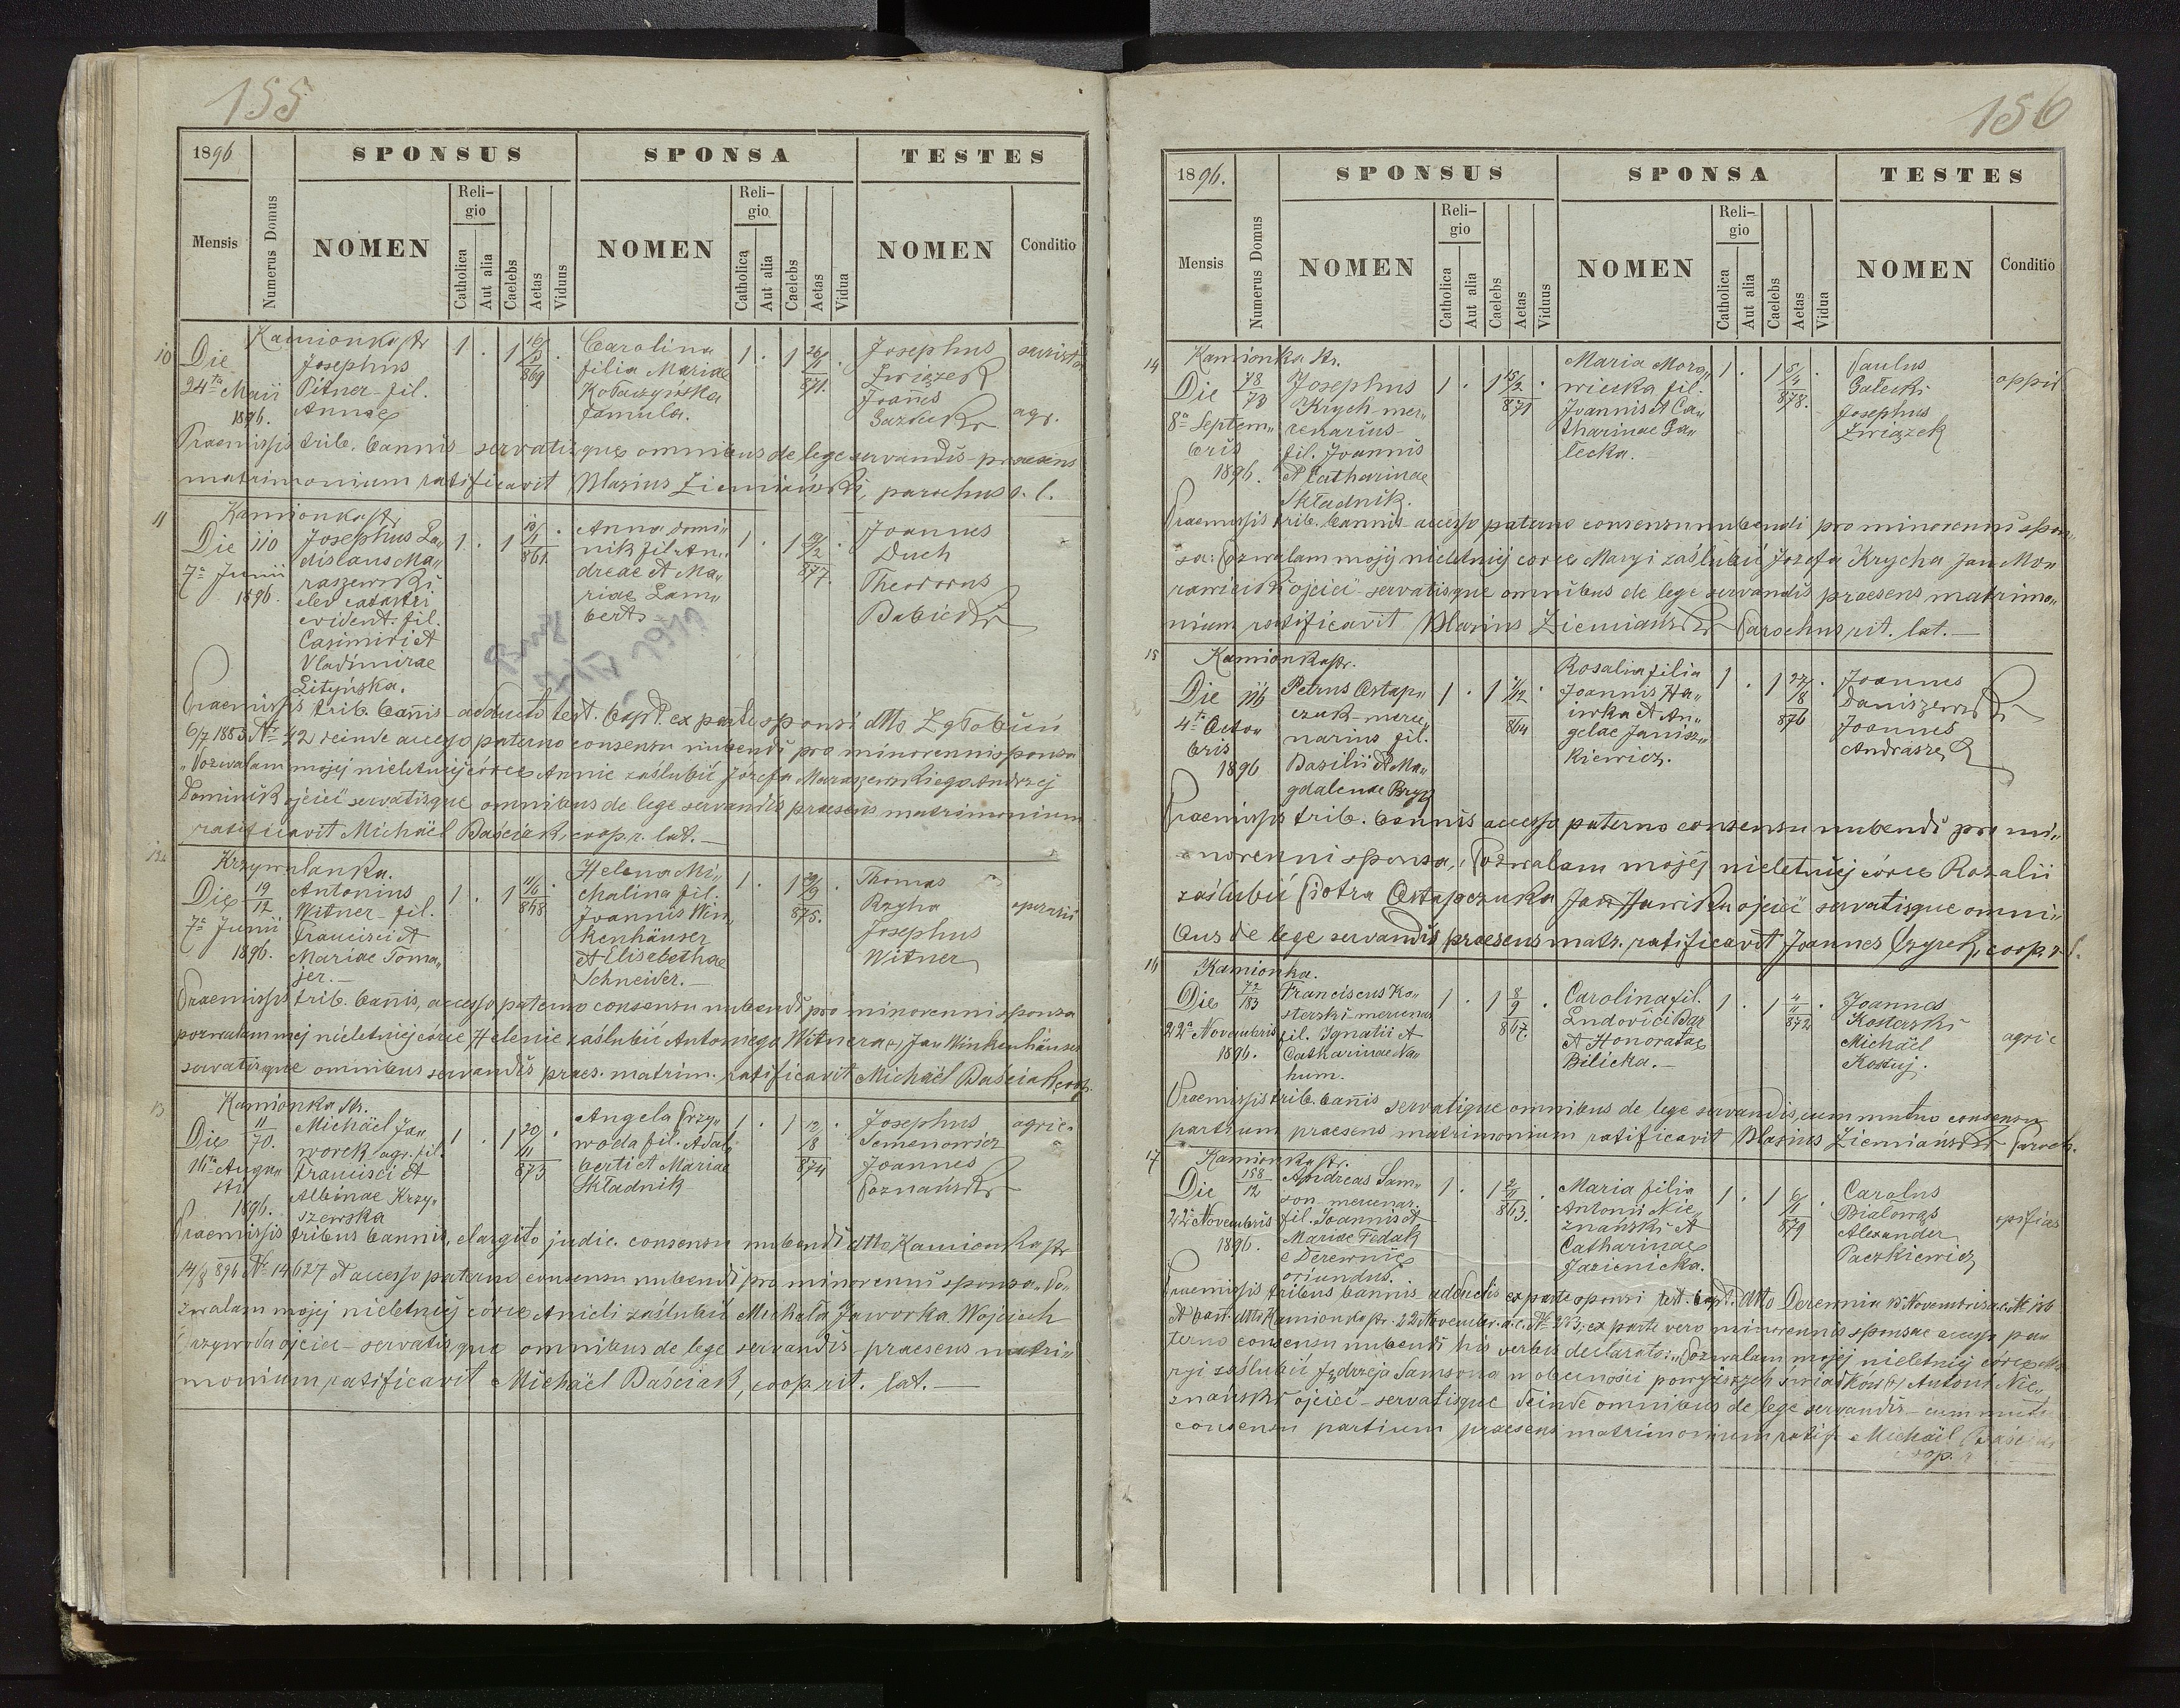 155
1896
SPONSUS
SPONSA
TESTES
Mensis
Numerus Domus
NOMEN
Reli-
gio
Catholica
Aut alia
Caelebs
Aetas
Viduus
NOMEN
Reli-
gio
Catholica
Aut alia
Caelebs
Aetas
Vidua
NOMEN
Conditio
10
Kamionka str
Die
24ta Maii
1896.
Josephus
Pitner fil.
Annae
1 . 1 16/3 869 .
Carolina
filia Mariae
Kołaczyńska
famula.
1 . 1 26/1 871. .
Josephus
Związek
Joannes
agr.
Praemissis trib. bannis servatisque omnibus de lege servandis praesens
matrimonium ratificavit Blasius Ziemiański, parochus r. l.
11
Kamionka str
Die 110
7a Junii
1896.
Josephus La„
dislaus Ma„
raszewski
elev catastri
evident. fil.
Casimiri et
Vladimirae
Lityńska.
1 . 1 861. .
Anna Domi„
nik fil. An„
dreae et Ma„
riae Lam„
bert
1 . 1 877. .
Joannes
Duch
Theodorus
Babicki
Praemissis trib. bannis adducto test. bapt. ex parte sponsi dtto Zgłobień
6/7 1883 No 42 deinde accesso paterno consensu nubendi pro minorenni sponsa
„Pozwalam mojej nieletniej córce Annie zaślubić Józefa Maraszewskiego Andrzej
Dominik ojciec servatisque omnibus de lege servandis praesens matrimonium
ratificavit Michaël Baściak, coop. r. lat.
12.
Krzywulanka.
Die 19/12
7a Junii
1896.
Antonius
Witner fil.
Francisci et
Mariae Toma„
jer.
1 . 1 11/6 868 .
Helena Mi„
chalina fil.
Joannis Win„
kenhäuser
et Elisabethae
Schneider.
1 . 1 29/9 875. .
Thomas
Rzyha
Josephus
Witner
Praemissis trib. bannis, accesso paterno consensu nubendi pro minorenni sponsa
pozwalam mej nieletniej córce Helenie zaślubić Antoniego Witnera Jan Winkenhäuser
servatisque omnibus servandis praes. matrim. ratificavit Michaël Baściak coop.
13
Kamionka str.
Die 11/70.
16ta Augu„
sti
1896.
Michaël Ja„
worek agr. fil.
Francisci et
Albinae Krzy„
szewska
1 . 1 20/11 873 .
Angela Przy„
woda fil. Adal„
berti et Mariae
Składnik
1 . 1 12/8 874 .
Josephus
Semenowicz
Joannes
Poznański
agric.
Praemissis tribus bannis, elargito judic. consensu nubendi dtto Kamionka str
14/8 896 No 14627 et accesso paterno consensu nubendi pro minorenni sponsa „Po„
zwalam mojej nieletniej córce Anieli zaślubić Michała Jaworka Wojciech
Przywoda ojciec - servatisque omnibus de lege servandis - praesens matri„
monium ratificavit Michaël Baściak, coop. rit. lat.
156
1896.
SPONSUS
SPONSA
TESTES
Mensis
Numerus Domus
NOMEN
Reli-
gio
Catholica
Aut alia
Caelebs
Aetas
Viduus
NOMEN
Reli-
gio
Catholica
Aut alia
Caelebs
Aetas
Vidua
NOMEN
Conditio
14
Kamionka str.
Die 78/73
8a Septem„
bris
1896.
Josephus
Krych mer„
cenarius
fil. Joannis
et Catharinae
Składnik.
1 . 1 15/2 871 .
Maria Mora„
wiecka fil.
Joannis et Ca„
tharinae Ga„
łecka.
1 . 1 5/4 878. .
Paulus
Gałecki
Josephus
Związek
oppid
Praemissis trib. bannis accesso paterno consensu nubendi pro minorenni spon„
sa: Pozwalam mojej nieletniej córce Maryi zaślubić Józefa Krycha Jan Mo„
rawiecki ojciec - servatisque omnibus de lege servandis praesens matrimo„
nium ratificavit Blasius Ziemiański Parochus rit. lat.
15
Kamionka str.
Die 116
4ta Octo„
bris
1896
Petrus Ostap„
czuk merce„
narius fil.
Basilii et Ma„
gdalenae Bryg
1 . 1 864 .
Rosalia filia
Joannis Ha„
iwka et An„
gelae Janisz„
kiewicz.
1 . 1 27/8 876 .
Joannes
Daniszewski
Joannes
Andraszek
Praemissis trib. bannis accesso paterno consensu nubendi pro mi„
norenni sponsa, „Pozwalam mojej nieletniej córce Rozalii
zaślubić Piotra Ostapczuka Jan ojciec servatisque omni„
bus de lege servandis praesens matr. ratificavit Joannes coop. r. l.
16
Kamionka.
Die 72/183
22a Novembris
1896.
Franciscus Ko„
sterski mercenar
fil. Ignatii et
Catharinae Na„
hum.
1 . 1 8/9 867. .
Carolina fil.
Ludovici Bar
et Honoratae
Bilicka.
1 . 1 4/11 872 .
Joannes
Kosterski
Michaël
Kostuj.
agric
Praemissis trib. bannis servatique omnibus de lege servandis, cum mutuo consensu
partium praesens matrimonium ratificavit Blasius Ziemiański paroch.
17
Kamionka str.
Die 158/12
22a Novembris
1896.
Andreas Sam„
son mercenar.
fil. Joannis et
Mariae Fedak
e Derewnie
oriundus.
1 . 1 2/11 863. .
Maria filia
Antonii Nie„
znański et
Catharinae
Jazienicka.
1 . 1 6/11 879 .
Carolus
Białowąs
Alexander
Paczkiewicz
opifices
Praemissis tribus bannis adductis ex parte sponsi test. bapt. dtto Derewnia 13 Novembris a.c. No 136
et bann. dtto Kamionka str. 22 Novembr. a.c. No 323, ex parte vero minorennis sponsae accesso pa„
terno consensu nubendi his verbis declarato: „Pozwalam mojej nieletniej córce Ma„
ryi zaślubić Jędrzeja Samsona w obecności powyższych świadków Antoni Nie„
znański ojciec - servatisque deinde omnibus de lege servandis - cum mutuo
consensu partium praesens matrimonium ratif. Michaël Baściak
coop.